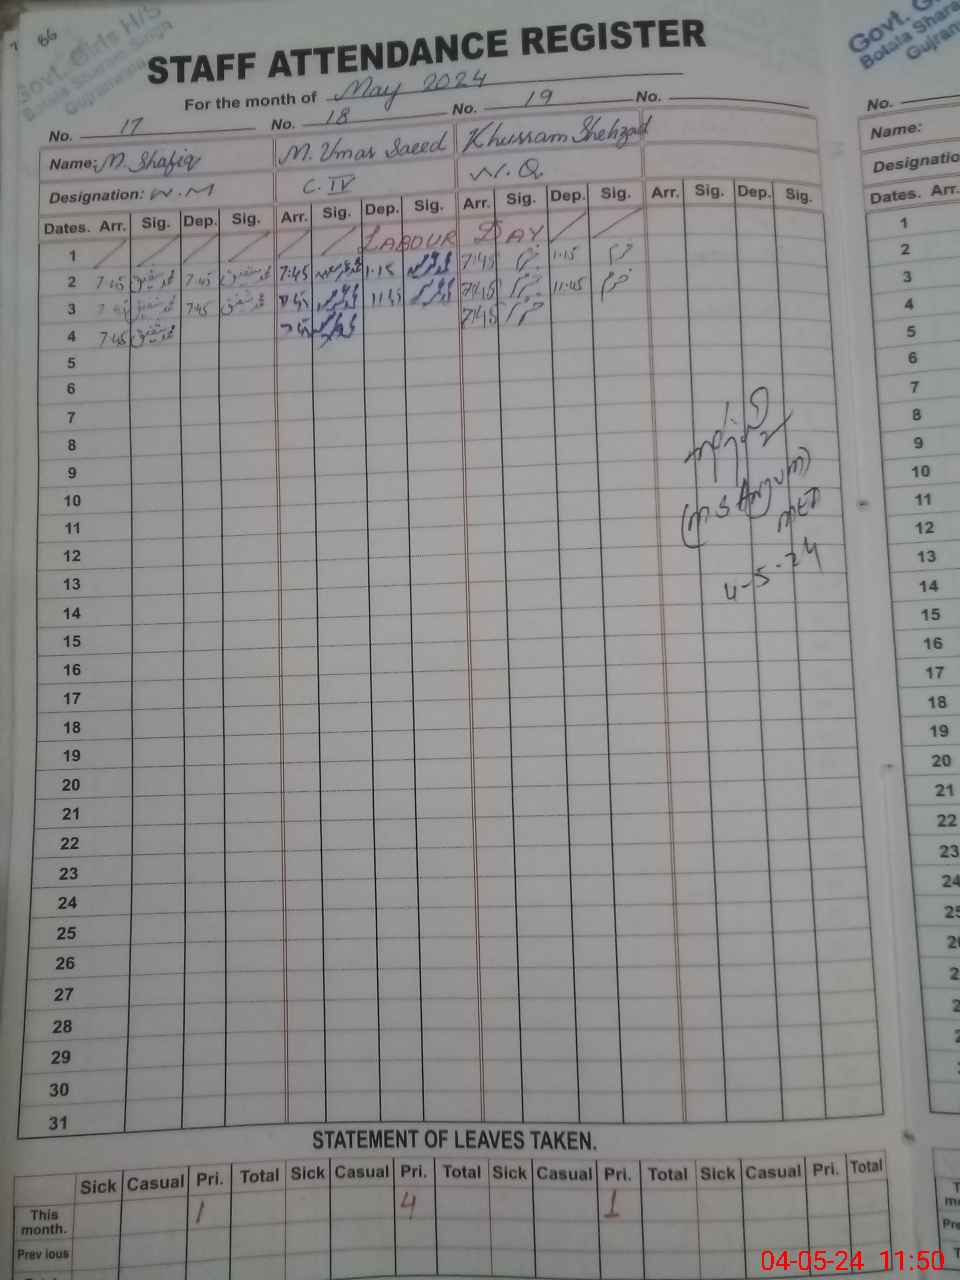 86
Govt. Girls H/S
Botala Sharam Singh
Gujranwala
STAFF ATTENDANCE REGISTER
For the month of May 2024
No. 17 No. 18 No. 19 No.
Name: M. Shafiq M. Umar Saeed Khurram Shehzad
Designation: W.M C.IV N.Q.
Dates. Arr. Sig. Dep. Sig. Arr. Sig. Dep. Sig. Arr. Sig. Dep. Sig. Arr. Sig. Dep. Sig.
1 LABOUR DAY
2 7:45 محمد شفیق 7:45 محمد شفیق 7:45 1:15 7:45 خرم 1:15 خرم
3 7:45 محمد شفیق 7:45 محمد شفیق 7:45 11:45 7:45 خرم 11:45 خرم
4 7:45 محمد شفیق 7:45 7:45 خرم
5
6
7
8
9
10
11
12
13
14
15
16
17
18
19
20
21
22
23
24
25
26
27
28
29
30
31
(M S Anjum)
4-5-24
STATEMENT OF LEAVES TAKEN.
Sick Casual Pri. Total Sick Casual Pri. Total Sick Casual Pri. Total Sick Casual Pri. Total
This month. 1 4 1
Prev ious
Govt.
Botala
Gujran
No.
Name:
Designatio
Dates. Arr.
1
2
3
4
5
6
7
8
9
10
11
12
13
14
15
16
17
18
19
20
21
22
23
24
04-05-24 11:50